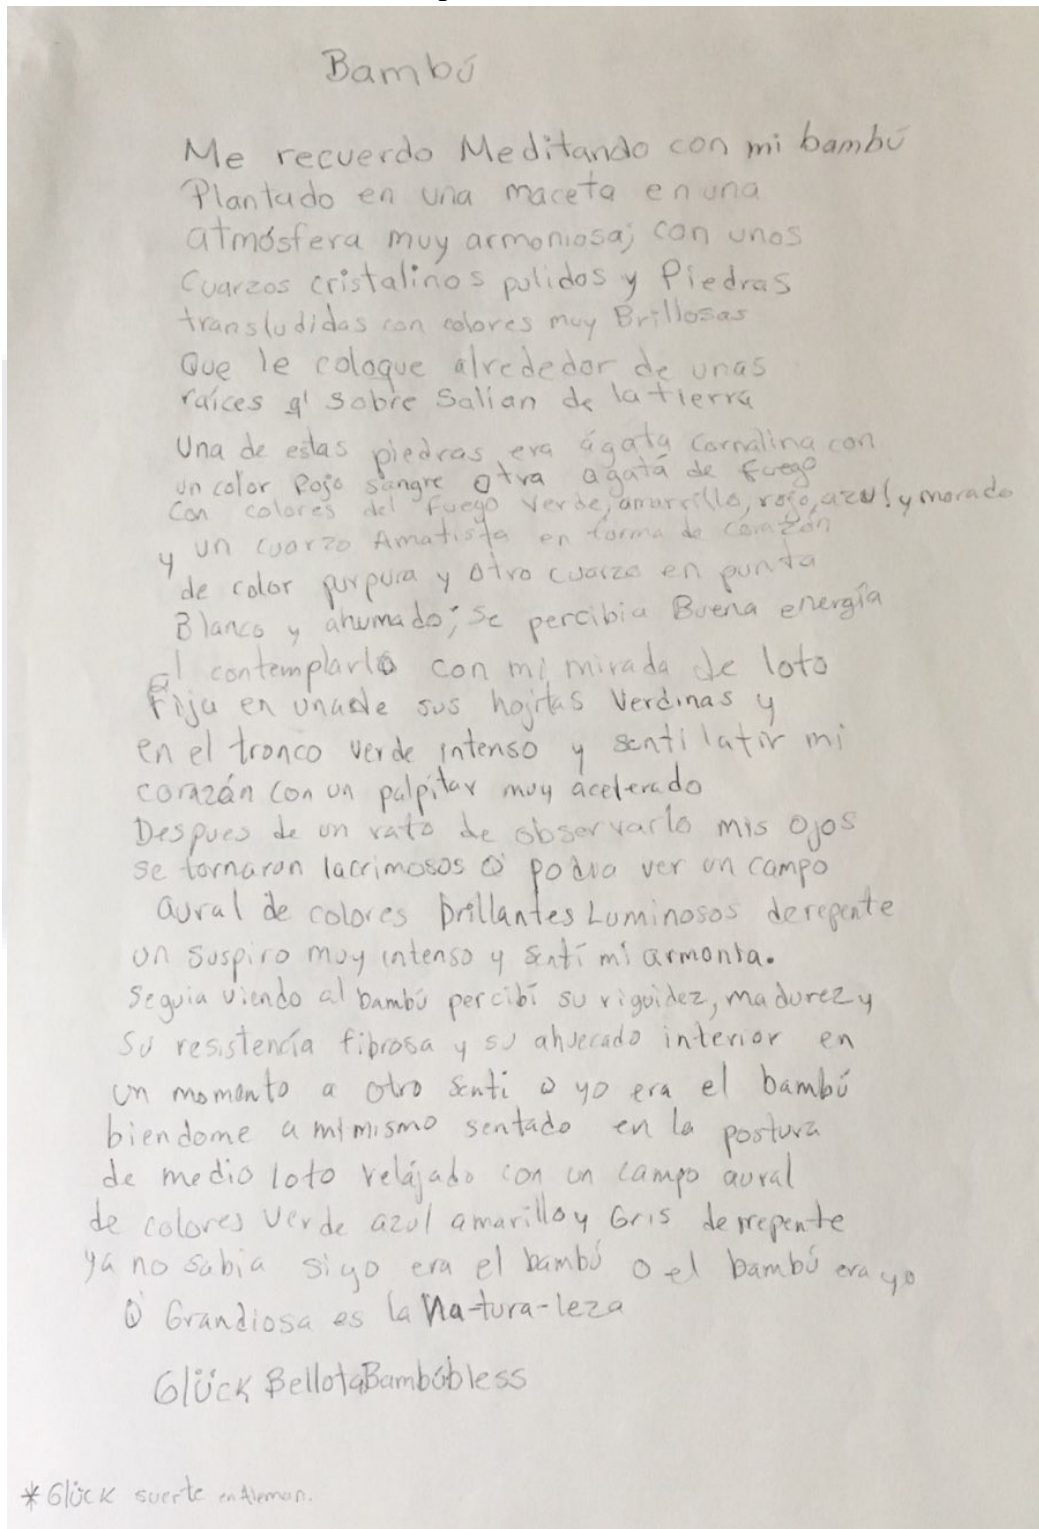 Bambú
Me recuerdo Meditando con mi bambú
Plantado en una maceta en una
atmósfera muy armoniosa; con unos
Cuarzos cristalinos pulidos y Piedras
transludidas con colores muy Brillosas
Que le coloque alrededor de unas
raíces q' sobre Salian de la tierra
Una de estas piedras era ágata Cornalina con
un color Rojo sangre otra agatá de fuego
Con colores del fuego verde, amarrillo, rojo, azul y morado
y un cuarzo Amatista en forma de corazón
de color purpura y otro cuarzo en punta
Blanco y ahumado; Se percibia Buena energía
al contemplarlo con mi mirada de loto
Fija en una de sus hojitas Verdinas y
en el tronco verde intenso y senti latir mi
corazón con un palpitar muy acelerado
Despues de un rato de observarlo mis ojos
se tornaron lacrimosos Q' podia ver un campo
aural de colores brillantes Luminosos derepente
un suspiro muy intenso y sentí mi armonia.
Seguia viendo al bambú percibí su riguidez, madurez y
Su resistencía fibrosa y su ahuecado interior en
un momento a otro senti Q yo era el bambú
biendome a mi mismo sentado en la postura
de medio loto relájado con un campo aural
de colores verde azul amarillo y Gris derrepente
ya no sabia si yo era el bambú o el bambú era yo
Q' Grandiosa es la Na-tura-leza
Glück BellotaBambúbless
*Glück suerte en Aleman.